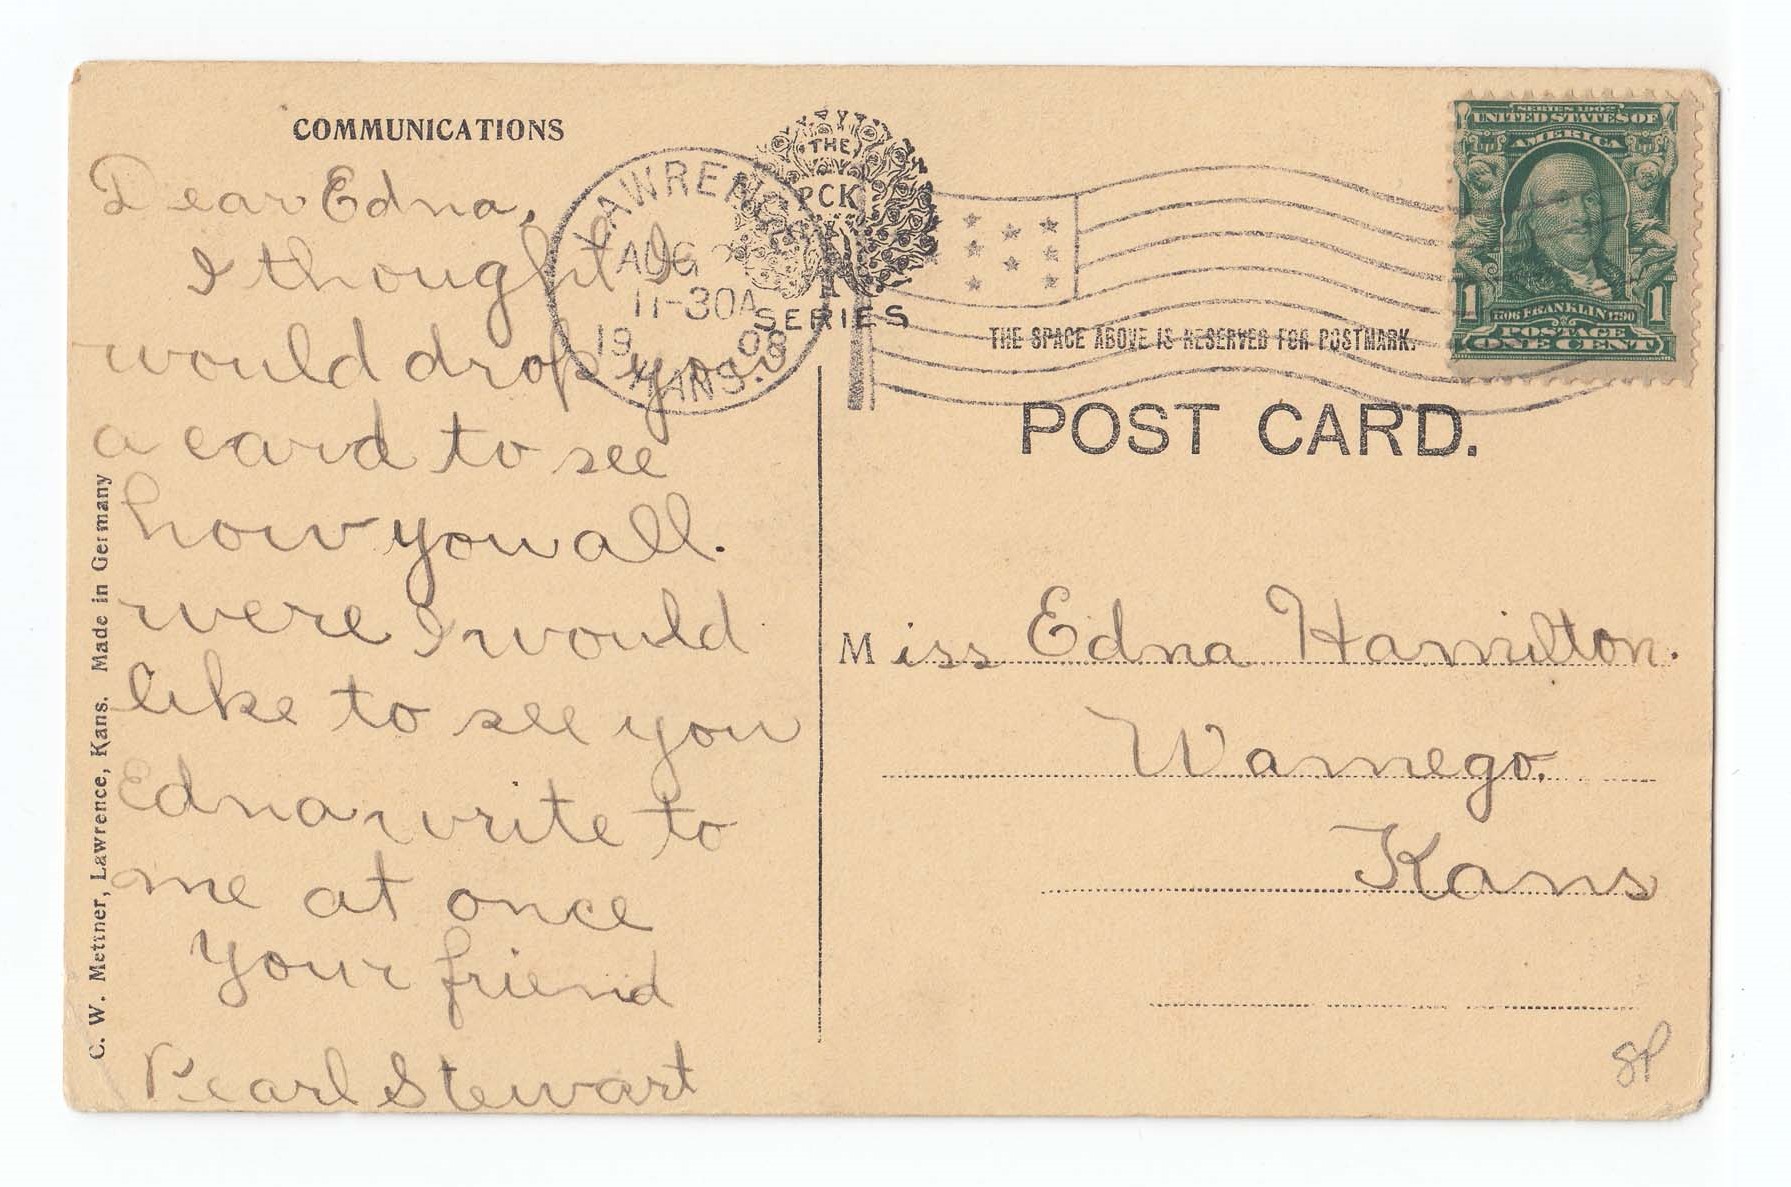 COMMUNICATIONS
Dear Edna,
I thought I
would drop you
a card to see
how you all.
were I would
like to see you
Edna write to
me at once
your friend
Pearl Stewart
C. W. Mettner, Lawrence, Kans. Made in Germany
LAWRENCE
AUG
11-30A
19 08
KANS.
THE
PCK
SERIES
SERIES 1902
UNITED STATES OF
AMERICA
1 1706 FRANKLIN 1790 1
POSTAGE
ONE CENT
THE SPACE ABOVE IS RESERVED FOR POSTMARK.
POST CARD.
Miss Edna Hamilton.
Wamego.
Kans